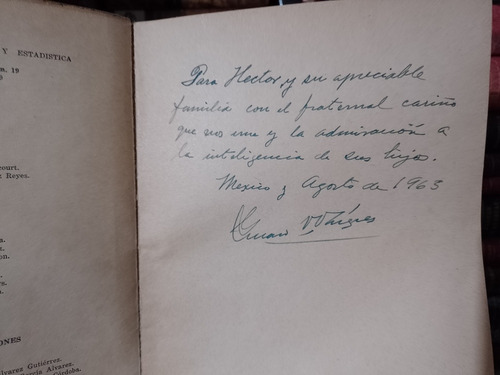 Y ESTADISTICA
m. 19
court.
Reyes.
on.
rs.
ONES
lvarez Gutiérrez.
García Alvarez.
Córdoba.
Para Hector, y su apreciable
familia con el fraternal cariño
que nos une y la admiración a
la inteligencia de sus hijos.
Mexico y Agosto de 1963